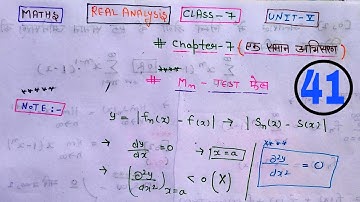 MATHS REAL ANALYSIS CLASS-7 UNIT-V
# Chapter-7 (एक समान अभिसरण)
# Mn - टेस्ट फेल
41
NOTE:-
y = |fn(x) - f(x)| → |Sn(x) - S(x)|
→ dy/dx = 0 → x=a
→ (∂²y/∂x²)x=a < 0 (X)
∂²y/∂x² = 0